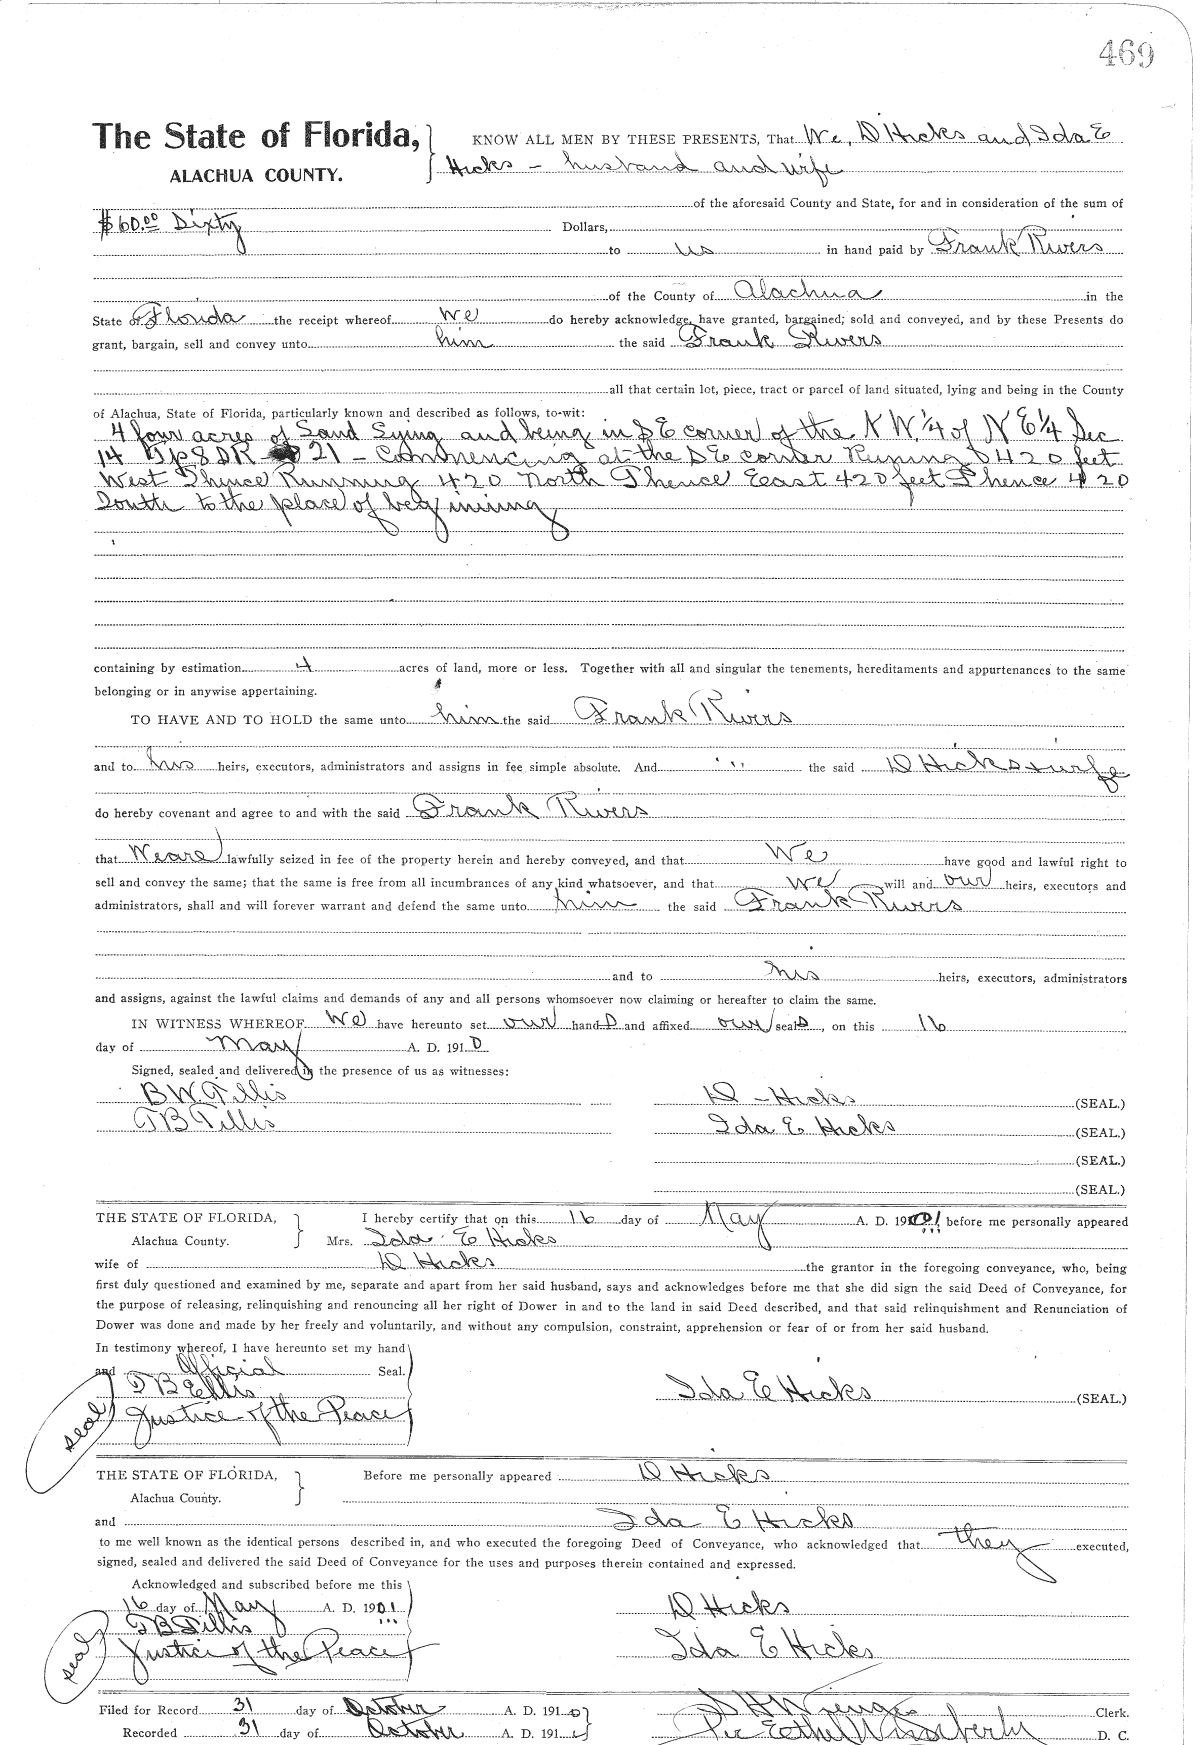 469
The State of Florida, KNOW ALL MEN BY THESE PRESENTS, That We, D Hicks and Ida E
ALACHUA COUNTY. Hicks - husband and wife
of the aforesaid County and State, for and in consideration of the sum of
$60.00 Sixty Dollars,
to us in hand paid by Frank Rivers
of the County of Alachua in the
State of Florida the receipt whereof we do hereby acknowledge, have granted, bargained, sold and conveyed, and by these Presents do
grant, bargain, sell and convey unto him the said Frank Rivers
all that certain lot, piece, tract or parcel of land situated, lying and being in the County
of Alachua, State of Florida, particularly known and described as follows, to-wit:
4 four acres of Land Lying and being in S E corner of the N W 1/4 of N E 1/4 Sec
14 Tp 8 S R 21 - Commencing at the S E corner Runing 420 feet
West Thence Running 420 North Thence East 420 feet Thence 420
South to the place of beginning
containing by estimation 4 acres of land, more or less. Together with all and singular the tenements, hereditaments and appurtenances to the same
belonging or in anywise appertaining.
TO HAVE AND TO HOLD the same unto him the said Frank Rivers
and to his heirs, executors, administrators and assigns in fee simple absolute. And the said D Hicks + wife
do hereby covenant and agree to and with the said Frank Rivers
that We are lawfully seized in fee of the property herein and hereby conveyed, and that We have good and lawful right to
sell and convey the same; that the same is free from all incumbrances of any kind whatsoever, and that we will and our heirs, executors and
administrators, shall and will forever warrant and defend the same unto him the said Frank Rivers
and to his heirs, executors, administrators
and assigns, against the lawful claims and demands of any and all persons whomsoever now claiming or hereafter to claim the same.
IN WITNESS WHEREOF We have hereunto set our hands and affixed our seals, on this 16
day of May A. D. 1910
Signed, sealed and delivered in the presence of us as witnesses:
B W Tillis D - Hicks (SEAL.)
T B Tillis Ida E Hicks (SEAL.)
(SEAL.)
(SEAL.)
THE STATE OF FLORIDA, I hereby certify that on this 16 day of May A. D. 191 before me personally appeared
Alachua County. Mrs. Ida E Hicks
wife of D Hicks the grantor in the foregoing conveyance, who, being
first duly questioned and examined by me, separate and apart from her said husband, says and acknowledges before me that she did sign the said Deed of Conveyance, for
the purpose of releasing, relinquishing and renouncing all her right of Dower in and to the land in said Deed described, and that said relinquishment and Renunciation of
Dower was done and made by her freely and voluntarily, and without any compulsion, constraint, apprehension or fear of or from her said husband.
In testimony whereof, I have hereunto set my hand
and Official Seal.
T B Ellis Ida E Hicks (SEAL.)
seal Justice of the Peace
THE STATE OF FLORIDA, Before me personally appeared D Hicks
Alachua County.
and Ida E Hicks
to me well known as the identical persons described in, and who executed the foregoing Deed of Conveyance, who acknowledged that they executed,
signed, sealed and delivered the said Deed of Conveyance for the uses and purposes therein contained and expressed.
Acknowledged and subscribed before me this
16 day of May A. D. 1901 D Hicks
T B Tillis
seal Justice of the Peace Ida E Hicks
Filed for Record 31 day of October A. D. 1910 S H Wienges Clerk.
Recorded 31 day of October A. D. 191 Per Ethel Wimberly D. C.